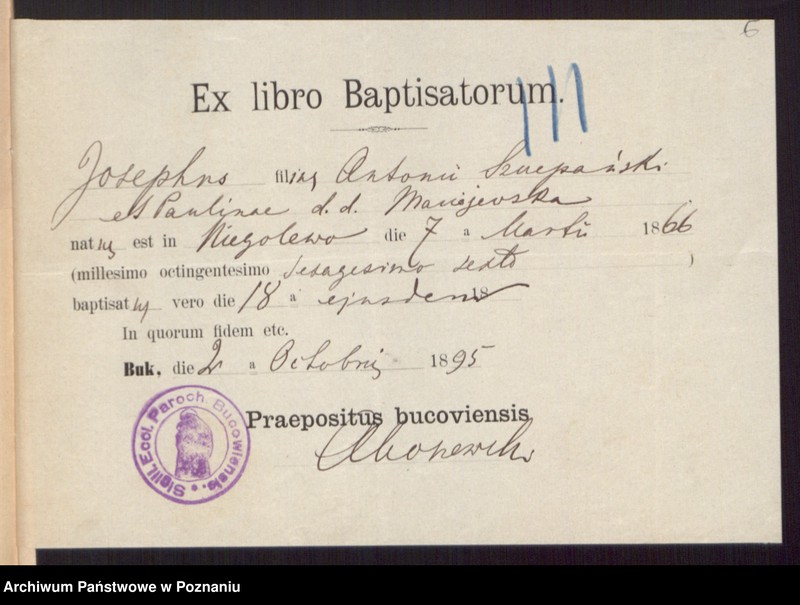 6
Ex libro Baptisatorum.
Josephus filius Antonii Szczepański
et Paulinae d. d. Maciejewska
natus est in Niegolewo die 7 a Martii 1866
(millesimo octingentesimo sexagesimo sexto )
baptisatus vero die 18 a ejusdem 18
In quorum fidem etc.
Buk, die 2 a Octobris 1895
Praepositus bucoviensis
Sigill. Eccl. Paroch. Bucowiensis.
Archiwum Państwowe w Poznaniu